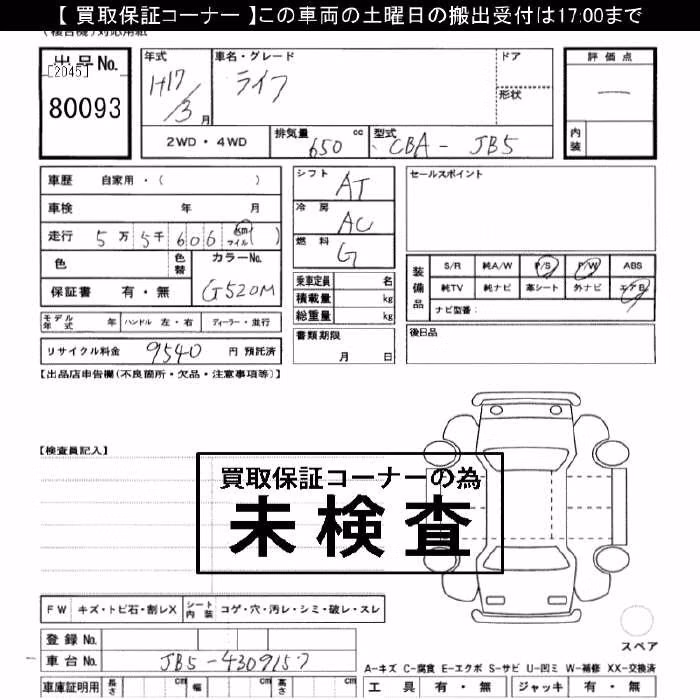 【 買取保証コーナー 】この車両の土曜日の搬出受付は17:00まで
出品No. 年式 車名・グレード ドア 評価点
[2045] H17 ライフ 形状 ―
80093 /3月 内装
2WD・4WD 排気量 650 cc 型式 CBA - JB5
車歴 自家用・( ) シフト AT セールスポイント
車検 年 月 冷房 AC
走行 5万 5千 606 km マイル ( ) 燃料 G
色 色替 カラーNo. G520M 乗車定員 名 装備品 S/R 純A/W P/S P/W ABS
保証書 有・無 積載量 kg 純TV 純ナビ 革シート 外ナビ エアB
総重量 kg ナビ型番:
モデル年式 年 ハンドル 左・右 ディーラー・並行 書類期限 月 日 後日品
リサイクル料金 9540 円 預託済
【出品店申告欄(不良箇所・欠品・注意事項等)】
【検査員記入】
買取保証コーナーの為
未検査
FW キズ・トビ石・割レX シート内装 コゲ・穴・汚レ・シミ・破レ・スレ
登録No. スペア
車台No. JB5-4309157
A-キズ C-腐食 E-エクボ S-サビ U-凹ミ W-補修 XX-交換済
車庫証明用 長さ cm 幅 cm 高さ cm 工具 有・無 ジャッキ 有・無